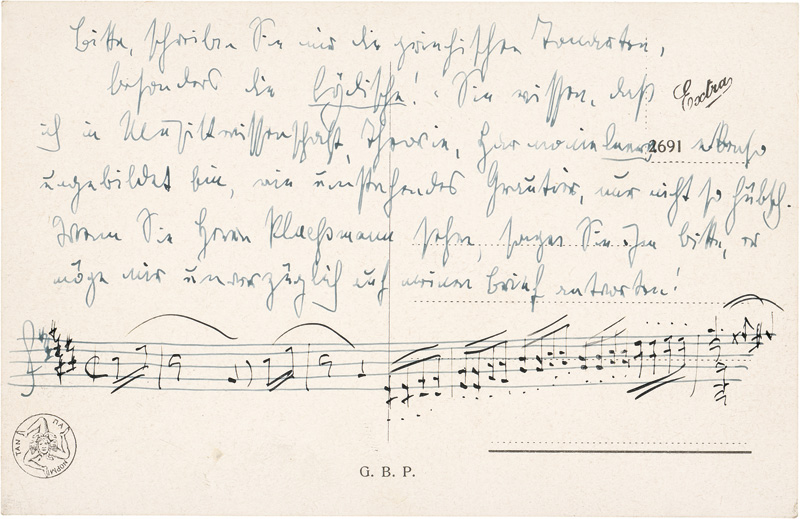 Bitte, schreiben Sie mir die griechischen Tonarten,
besonders die lydische! Sie wissen, daß
Extra
ich in Musikwissenschaft, Theorie, Harmonielehre ebenso
2691
ungebildet bin, wie umstehendes Grautier, nur nicht so hübsch.
Wenn Sie Herrn Plachsmann sehen, sagen Sie ihm bitte, er
möge mir unverzüglich auf meinen Brief antworten!
G. B. P.